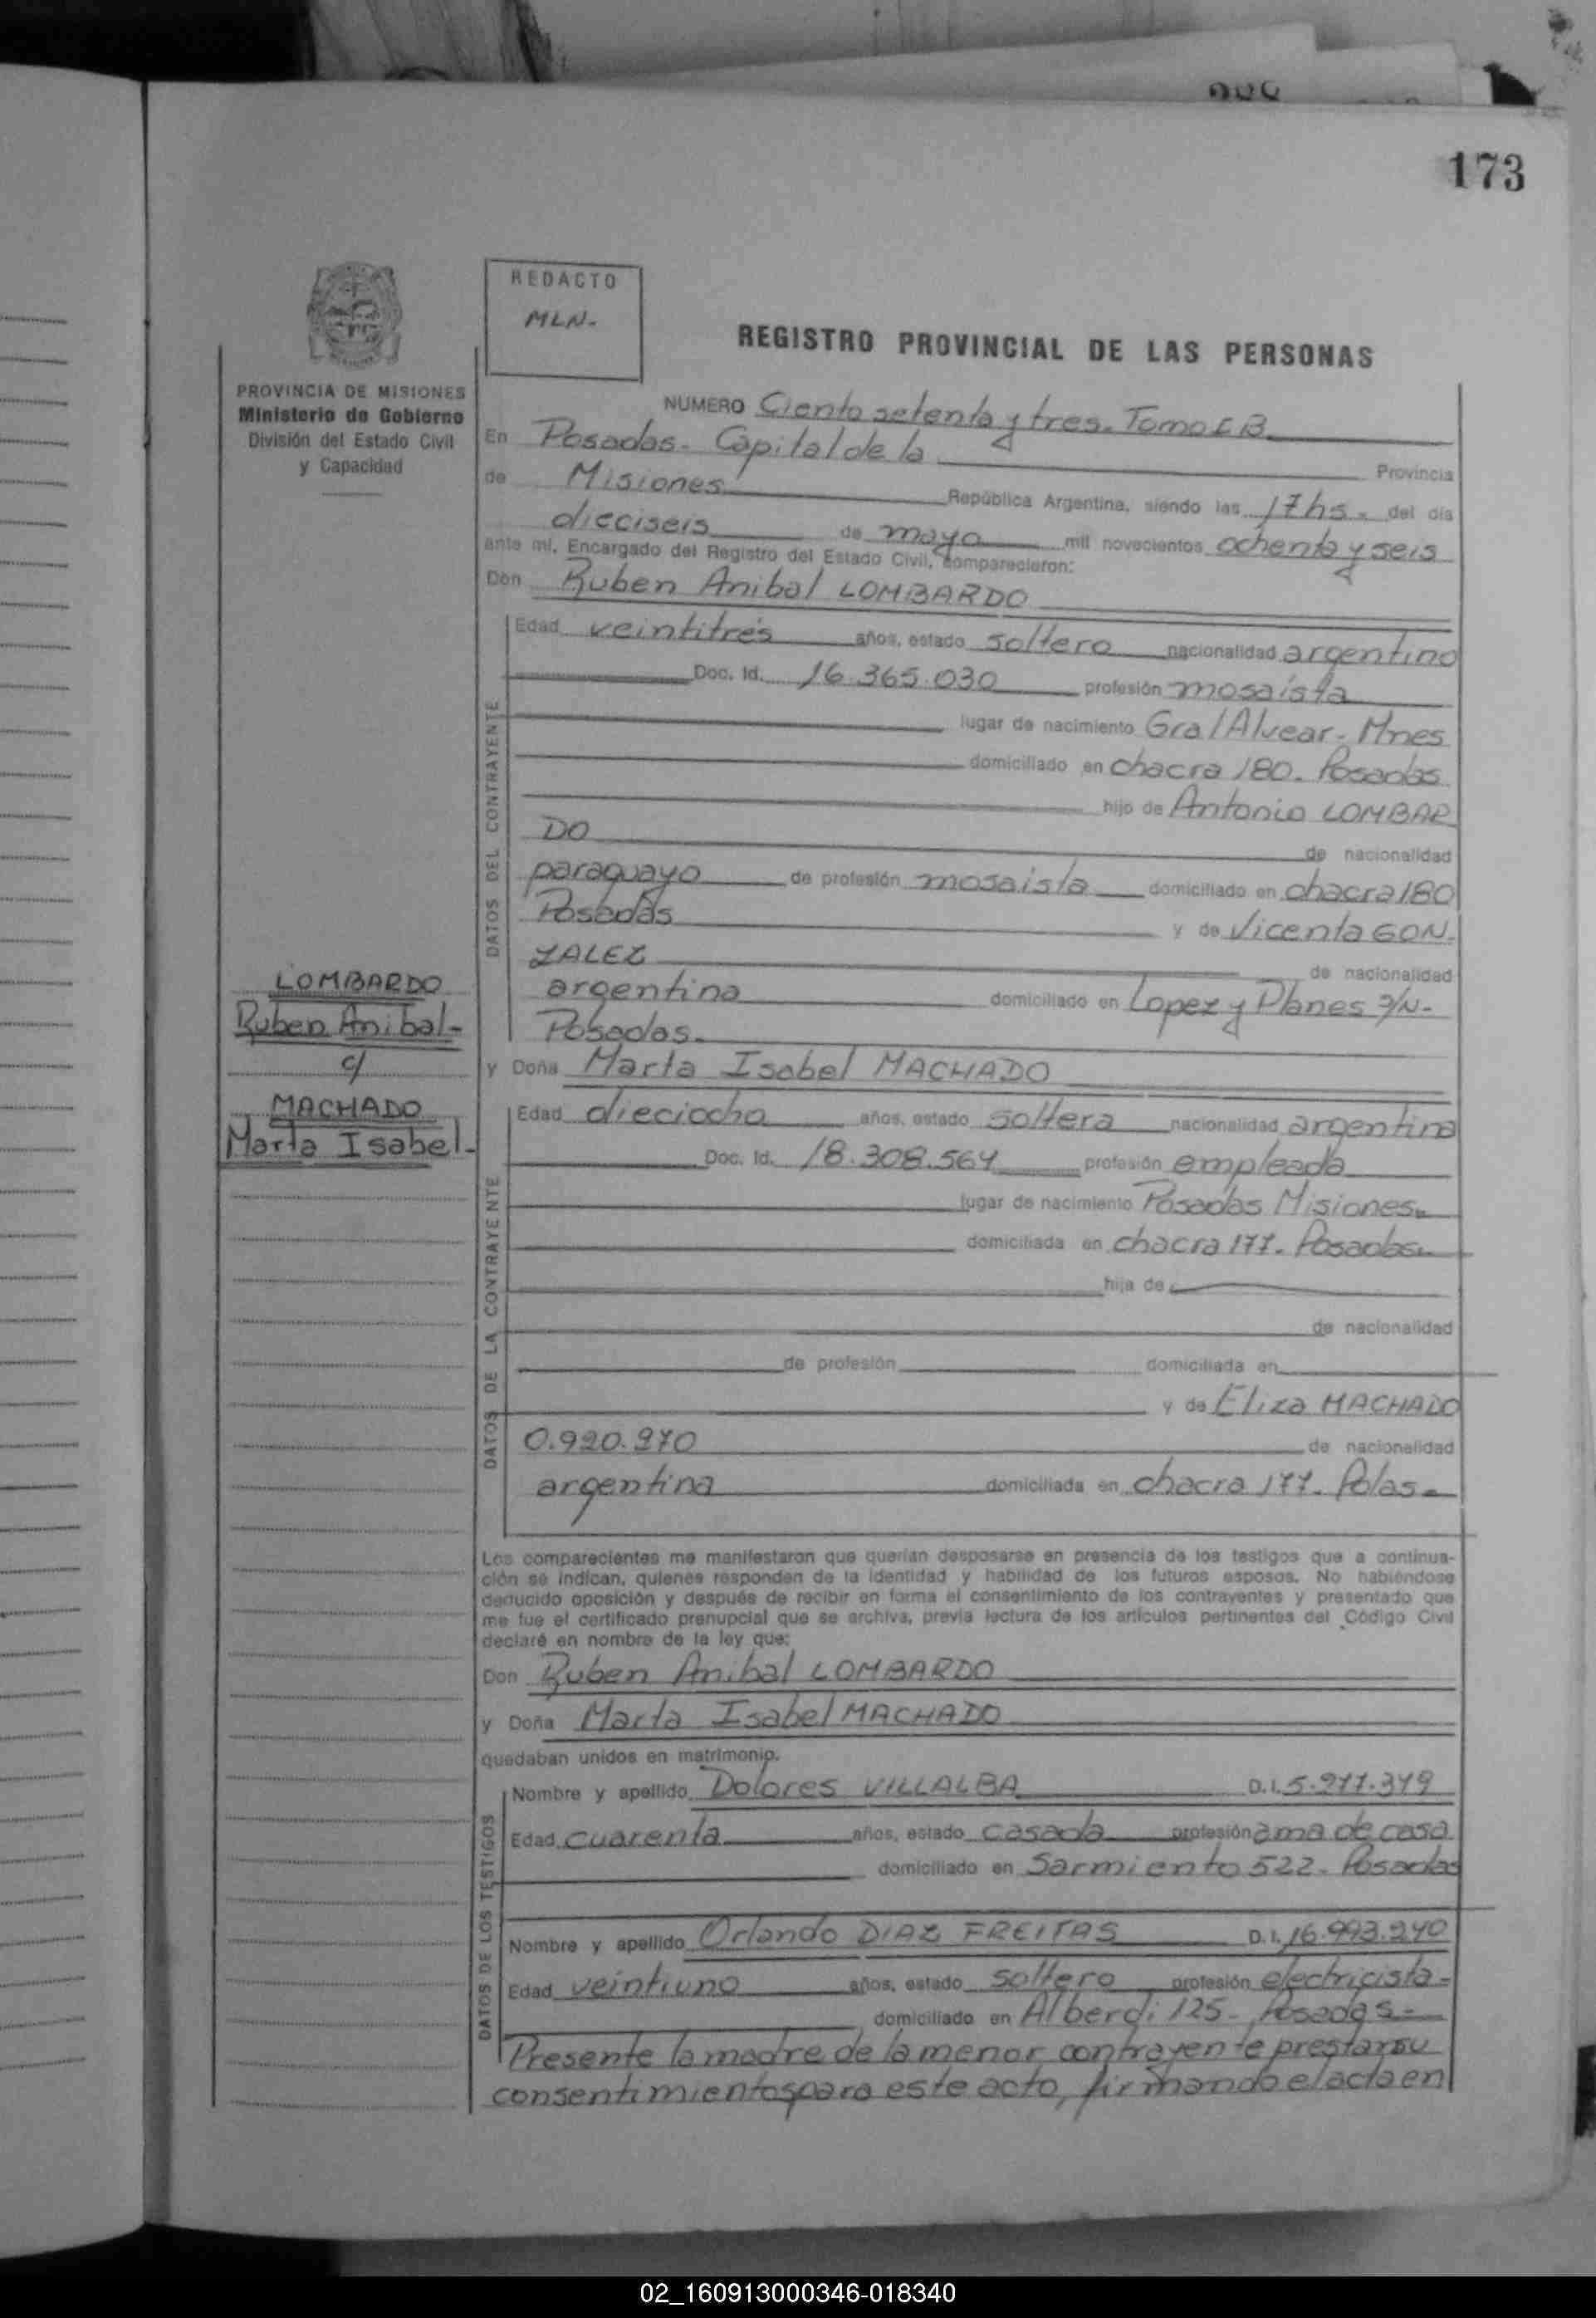 173
REDACTO
MLN-
REGISTRO PROVINCIAL DE LAS PERSONAS
PROVINCIA DE MISIONES
Ministerio de Gobierno
División del Estado Civil
y Capacidad
NUMERO Ciento setenta y tres. Tomo I B
En Posadas - Capital de la Provincia
de Misiones República Argentina, siendo las 17hs. del día
dieciseis de mayo mil novecientos ochenta y seis
ante mí, Encargado del Registro del Estado Civil, comparecieron:
Don Ruben Anibal LOMBARDO
DATOS DEL CONTRAYENTE
Edad veintitrés años, estado soltero nacionalidad argentino
Doc. Id. 16.365.030 profesión mosaísta
lugar de nacimiento Gral Alvear - Mnes
domiciliado en chacra 180. Posadas
hijo de Antonio LOMBAR
DO de nacionalidad
paraguayo de profesión mosaista domiciliado en chacra 180
Posadas y de Vicenta GON.
ZALEZ de nacionalidad
argentina domiciliado en Lopez y Planes S/N-
Posadas.
LOMBARDO
Ruben Anibal-
c/
MACHADO
Marta Isabel-
y Doña Marta Isabel MACHADO
DATOS DE LA CONTRAYENTE
Edad dieciocho años, estado soltera nacionalidad argentina
Doc. Id. 18.308.564 profesión empleada
lugar de nacimiento Posadas Misiones.
domiciliada en chacra 177. Posadas.
hija de
de nacionalidad
de profesión domiciliada en
y de Eliza MACHADO
0.920.270 de nacionalidad
argentina domiciliada en chacra 177. Pdas.
Los comparecientes me manifestaron que querían desposarse en presencia de los testigos que a continua-
ción se indican, quienes responden de la identidad y habilidad de los futuros esposos. No habiéndose
deducido oposición y después de recibir en forma el consentimiento de los contrayentes y presentado que
me fue el certificado prenupcial que se archiva, previa lectura de los artículos pertinentes del Código Civil
declaré en nombre de la ley que:
Don Ruben Anibal LOMBARDO
y Doña Marta Isabel MACHADO
quedaban unidos en matrimonio.
DATOS DE LOS TESTIGOS
Nombre y apellido Dolores VILLALBA D.I. 5.277.379
Edad cuarenta años, estado casada profesión ama de casa
domiciliado en Sarmiento 522 - Posadas
Nombre y apellido Orlando DIAZ FREITAS D.I. 16.993.240
Edad veintiuno años, estado soltero profesión electricista-
domiciliado en Alberdi 125 - Posadas -
Presente la madre de la menor contrayente prestar su
consentimiento para este acto, firmando el acta en
02_160913000346-018340